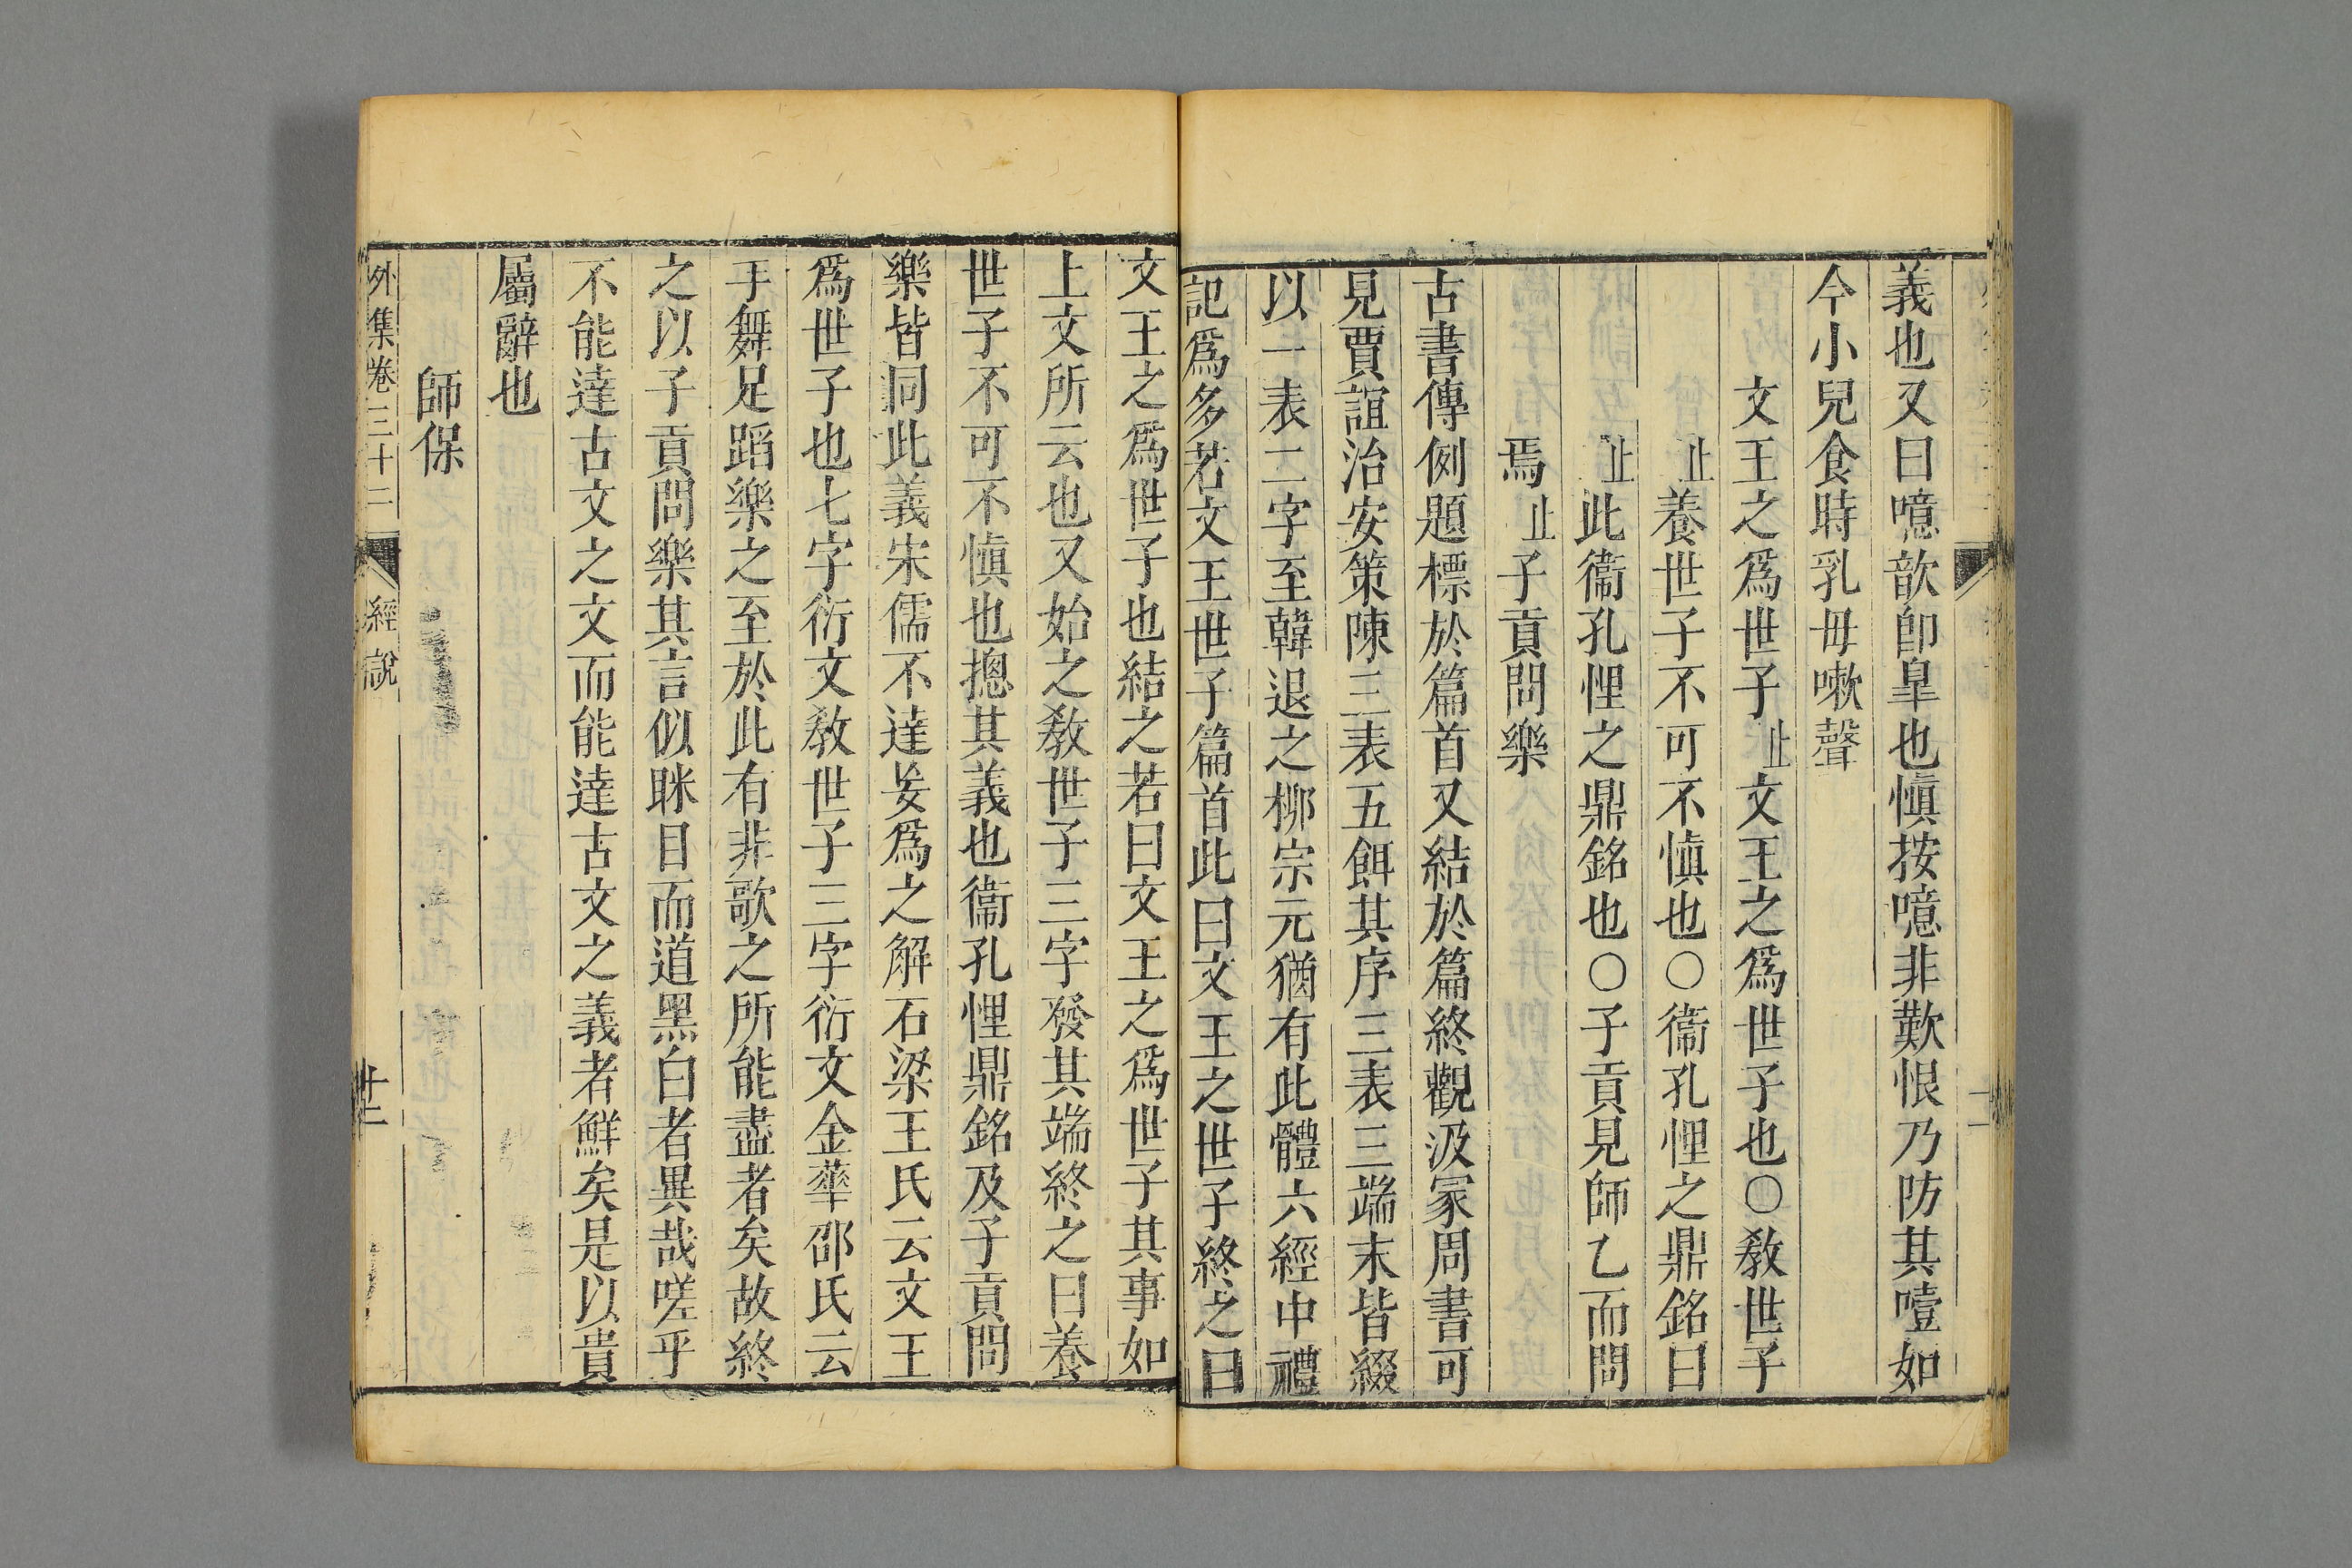 義也又曰噫歆卽皐也愼按噫非歎恨乃防其噎如
今小兒食時乳毋嗽聲
文王之爲世子止文王之爲世子也○敎世子
止養世子不可不愼也○衞孔悝之鼎銘曰
止此衞孔悝之鼎銘也○子貢見師乙而問
焉止子貢問樂
古書傳例題標於篇首又結於篇終觀汲冡周書可
見賈誼治安策陳三表五餌其序三表三端末皆綴
以一表二字至韓退之柳宗元猶有此體六經中禮
記爲多若文王世子篇首此曰文王之世子終之曰
文王之爲世子也結之若曰文王之爲世子其事如
上文所云也又始之敎世子三字發其端終之曰養
世子不可不愼也摠其義也衞孔悝鼎銘及子貢問
樂皆同此義宋儒不達妄爲之解石梁王氏云文王
爲世子也七字衍文敎世子三字衍文金華邵氏云
手舞足蹈樂之至於此有非歌之所能盡者矣故終
之以子貢問樂其言似眯目而道黑白者異哉嗟乎
不能達古文之文而能達古文之義者鮮矣是以貴
屬辭也
師保
外集卷三十二
經說